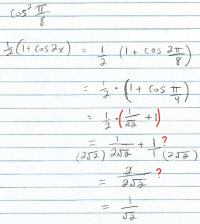 cos² π/8
1/2 (1 + cos 2x) = 1/2 (1 + cos 2π/8)
= 1/2 · (1 + cos π/4)
= 1/2 · (1/√2 + 1)
= 1/2√2 + 1/1 ?
(2√2) (2√2)
= 2/2√2 ?
= 1/√2